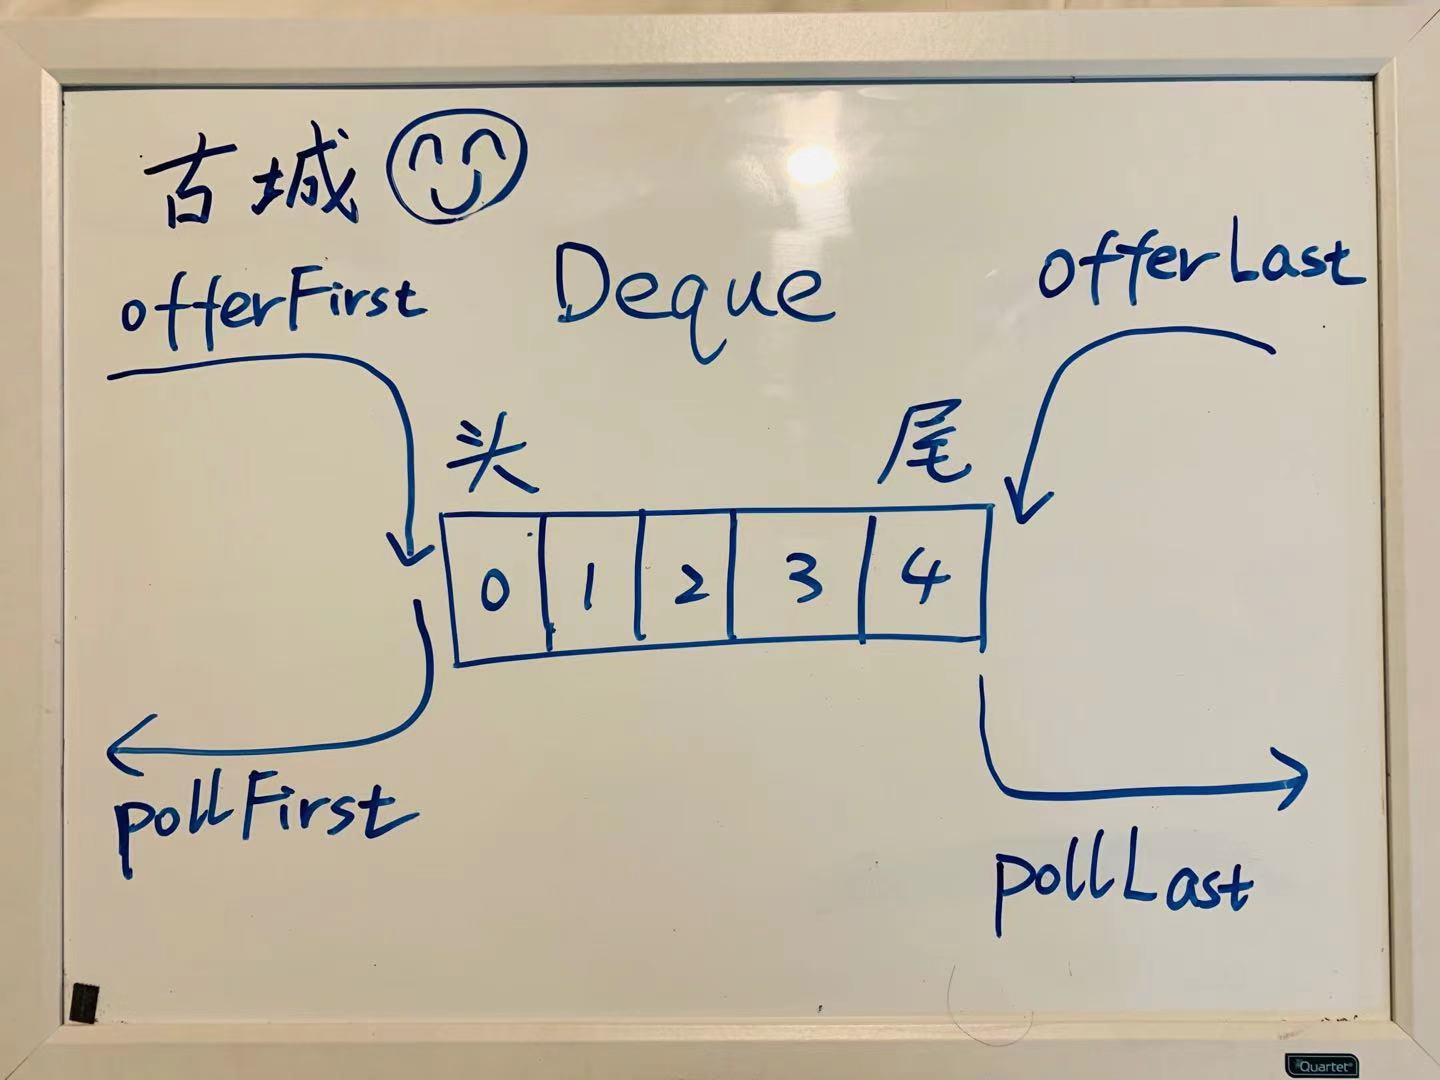 古城
offerFirst
Deque
offerLast
头
尾
0 1 2 3 4
pollFirst
pollLast
Quartet